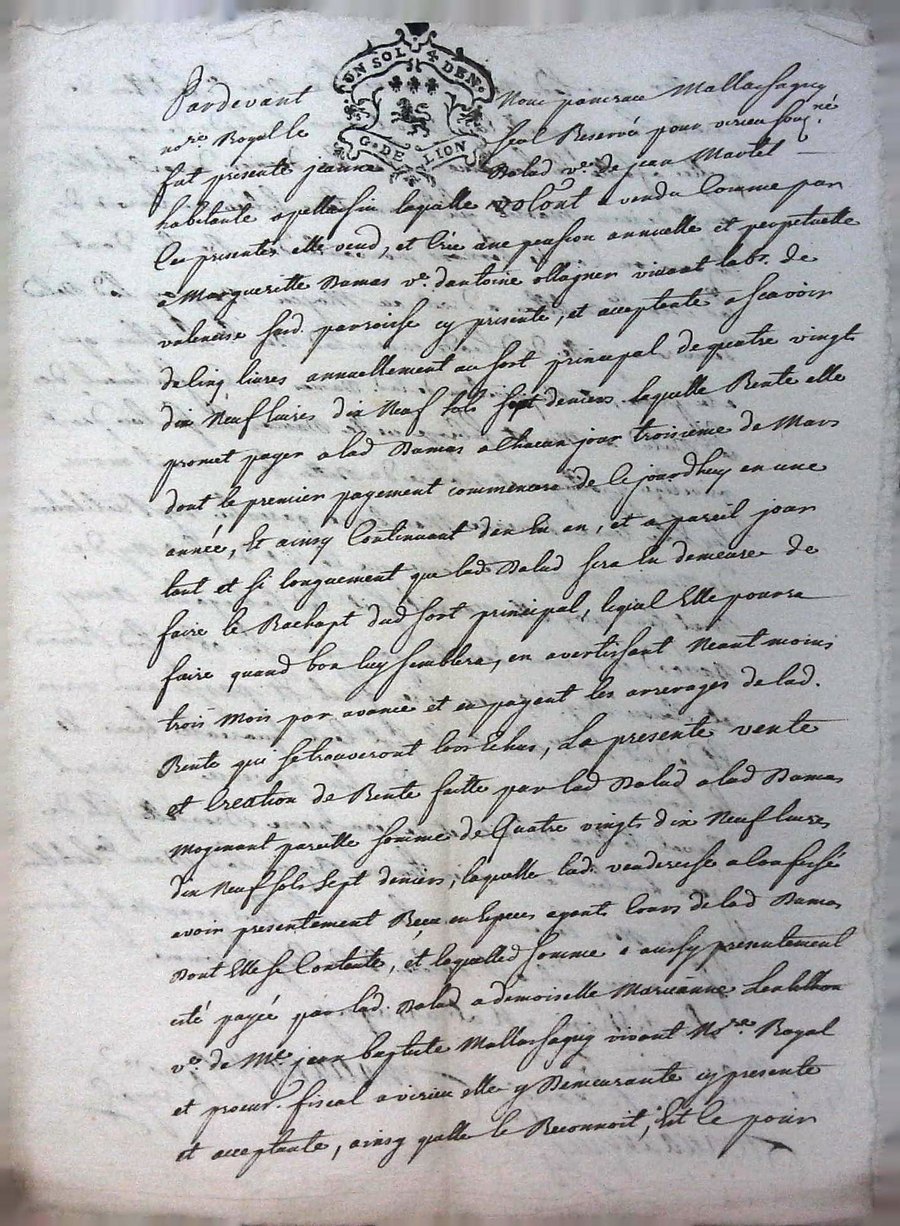 UN SOL 4 DEN.
G. DE LION
Pardevant Nous pancrace Mallassagny
nore Royal le seal Reservé pour virieu sousné
fut presente jeanne Balad ve. de jean Martel
habitante a pellusin laquelle volont a vendu Comme par
Ces presentes elle vend, et Crée une pension annuelle et perpetuelle
a Margueritte Damas ve. dantoine ollagner vivant labr. de
valencise sud. paroisse cy presente, et acceptante a scavoir
de Cinq livres annuellement au sort principal de quatre vingt
dix Neuf livres dix Neuf sols sept deniers laquelle Rente elle
promet payer a lad Damas a Chacun jour troisieme de Mars
dont le premier payement commencera de Ce jourdhuy en une
année, Et ainsy Continuant dan En an, et a pareil jour
tant et si longuement que lad Balad sera En demeure de
faire le Rachapt dud sort principal, lequel Elle pourra
faire quand bon luy semblera, en avertissant Neant moins
trois Mois par avance et en payent les arrerages de lad.
Rente qui se trouveront lors Echus, La presente vente
et Creation de Rente faitte par lad Balad a lad Damas
Moyenant pareille somme de Quatre vingts dix Neuf livres
dix Neuf sols sept deniers, laquelle lad. venderesse a Confessé
avoir presentement Reçu en Especes ayants Cours de lad Damas
Dont Elle se Contente, et laquelle d somme a aussy presentement
eté payée par lad. Balad a demoiselle Marianne Lentillon
ve. de Me. jean baptiste Mallassagny vivant Nore Royal
et procur. fiscal a virieu elle y Demeurante cy presente
et acceptante, ainsy quelle le Reconnoit, Est le pour